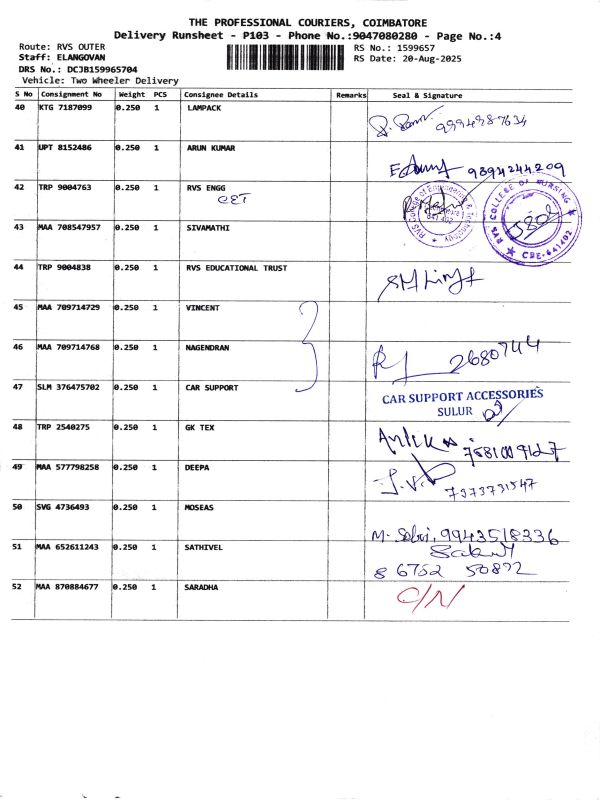 THE PROFESSIONAL COURIERS, COIMBATORE
Delivery Runsheet - P103 - Phone No.:9047080280 - Page No.:4
Route: RVS OUTER
RS No.: 1599657
Staff: ELANGOVAN
RS Date: 20-Aug-2025
DRS No.: DCJB159965704
Vehicle: Two Wheeler Delivery
S No Consignment No Weight PCS Consignee Details Remarks Seal & Signature
40 KTG 7187099 0.250 1 LAMPACK
9994987634
41 UPT 8152486 0.250 1 ARUN KUMAR
9894244209
42 TRP 9004763 0.250 1 RVS ENGG
CET
RVS College of Engineering & Technology
641 402
RVS COLLEGE OF NURSING
CBE-641402
43 MAA 708547957 0.250 1 SIVAMATHI
44 TRP 9004838 0.250 1 RVS EDUCATIONAL TRUST
45 MAA 709714729 0.250 1 VINCENT
46 MAA 709714768 0.250 1 NAGENDRAN
2680744
47 SLM 376475702 0.250 1 CAR SUPPORT
CAR SUPPORT ACCESSORIES
SULUR
48 TRP 2540275 0.250 1 GK TEX
49 MAA 577798258 0.250 1 DEEPA
7373731547
50 SVG 4736493 0.250 1 MOSEAS
9943518336
51 MAA 652611243 0.250 1 SATHIVEL
8 6752 50892
52 MAA 870884677 0.250 1 SARADHA
C/N